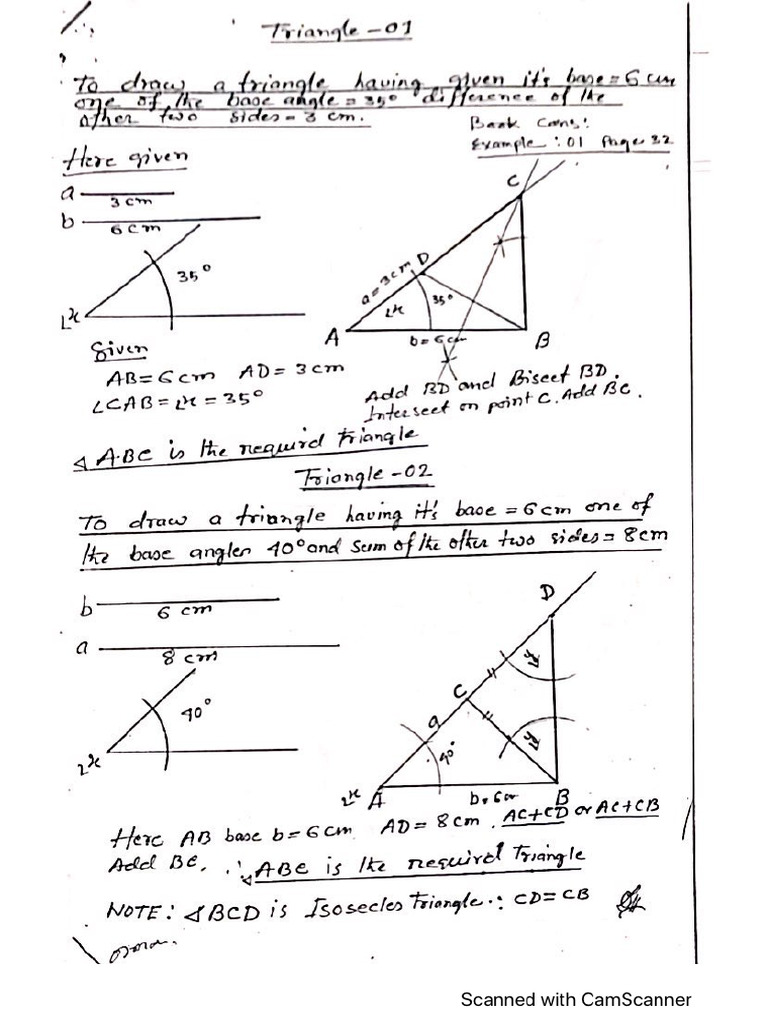 Triangle - 01
To draw a triangle having given it's base = 6 cm
one of the base angle = 35° difference of the
other two sides = 3 cm.
Book Cons:
Example : 01 Page 32
Here given
a
3 cm
b
6 cm
35°
∠x
C
D
a = 3cm
∠x
35°
A
b = 6 cm
B
Given
AB = 6 cm AD = 3 cm
∠CAB = ∠x = 35°
Add BD and Bisect BD.
Intersect on point C. Add BC.
∆ ABC is the required triangle
Triangle - 02
To draw a triangle having it's base = 6 cm one of
the base angles 40° and sum of the other two sides = 8 cm
b
6 cm
a
8 cm
40°
∠x
D
C
a
40°
∠x
A
b = 6 cm
B
Here AB base b = 6 cm AD = 8 cm. AC+CD or AC+CB
Add BC, ∴ ∆ ABC is the required Triangle
NOTE: ∆ BCD is Isosecles Triangle ∵ CD = CB
Scanned with CamScanner